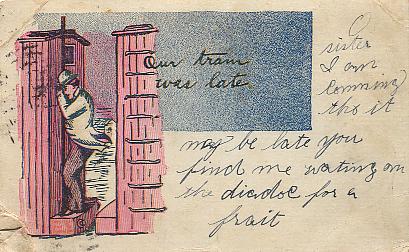 Our train
was late
sister
I am
Comming
tho it
may be late you
find me wating on
the diadoe for a
frait